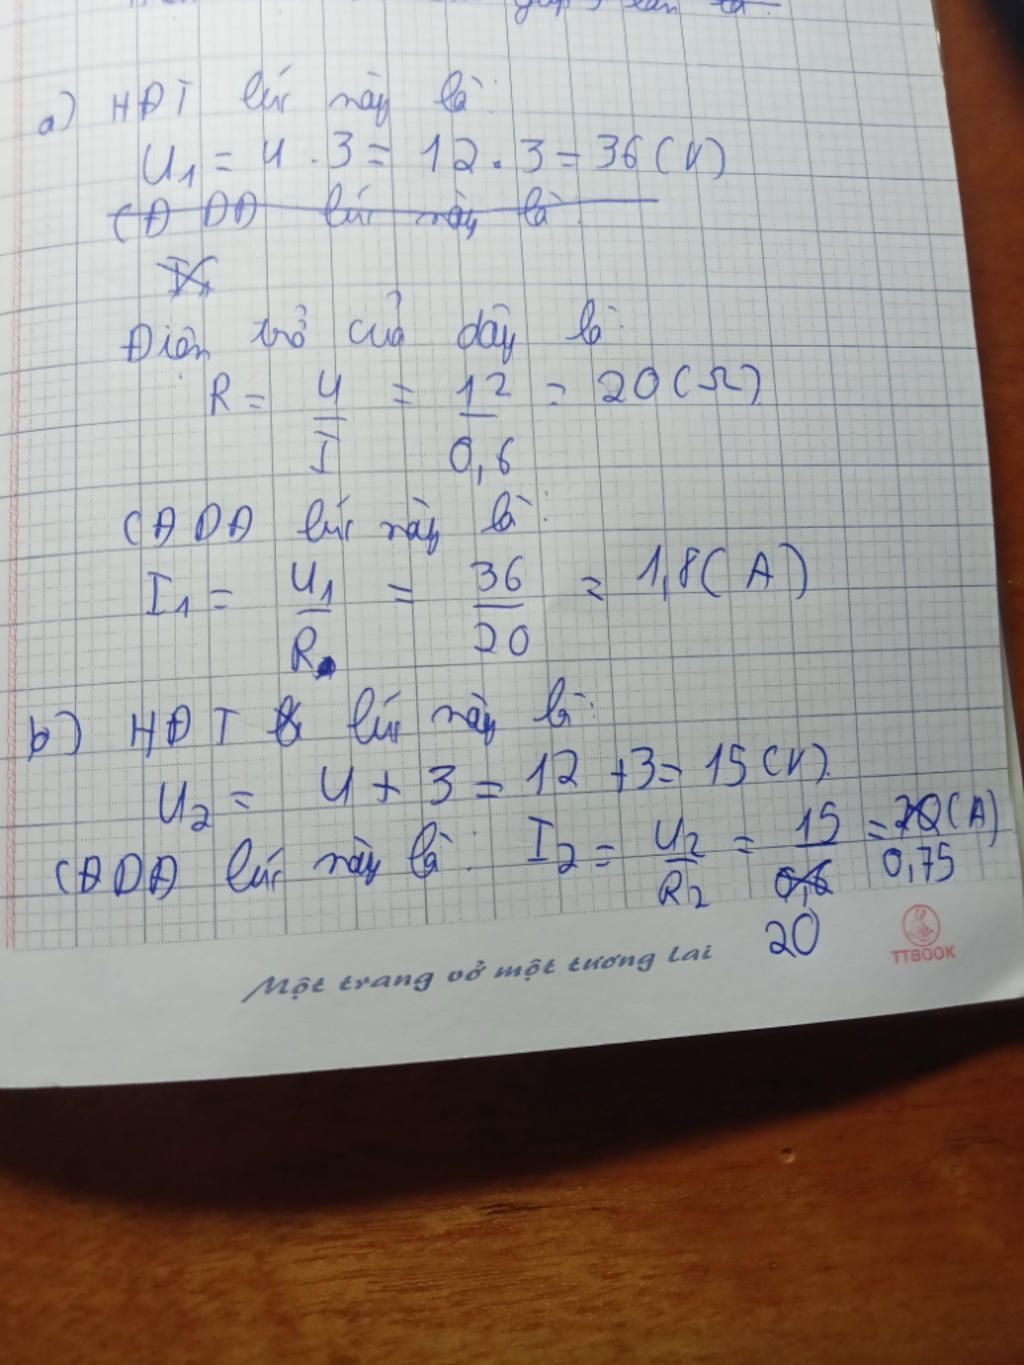 gấp 3 lần
a) HĐT lúc này là:
U1 = U . 3 = 12 . 3 = 36 (V)
CĐ DĐ lúc này là:
I
Điện trở của dây là:
R = U/I = 12/0,6 = 20 (Ω)
CĐDĐ lúc này là:
I1 = U1/R = 36/20 = 1,8 (A)
b) HĐT lúc này là:
U2 = U + 3 = 12 + 3 = 15 (V)
CĐDĐ lúc này là: I2 = U2/R2 = 15/20 = 0,75 (A)
Một trang vở một tương lai
TTBOOK